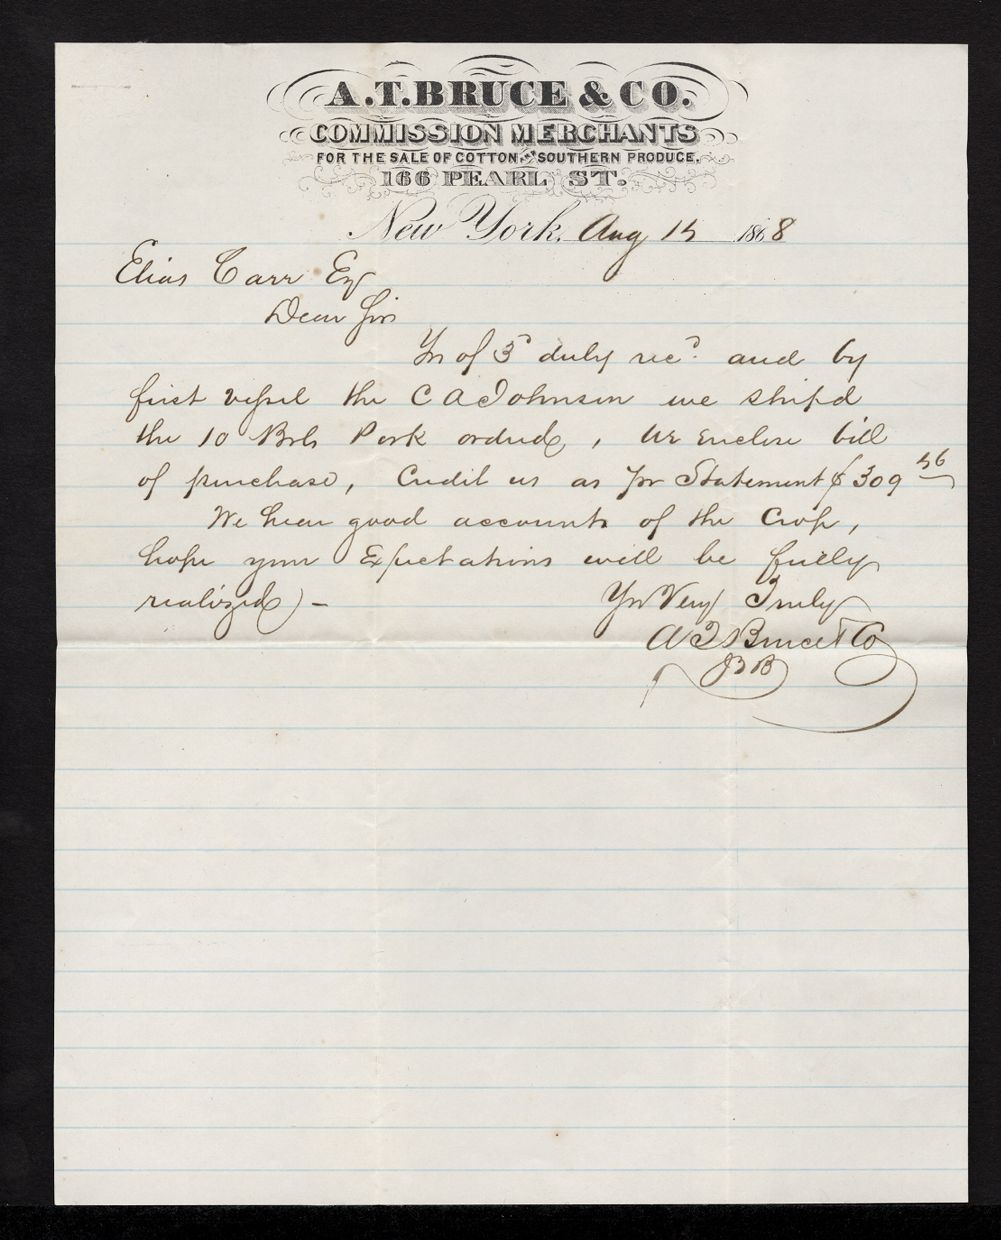 A.T. BRUCE & CO.
COMMISSION MERCHANTS
FOR THE SALE OF COTTON AND SOUTHERN PRODUCE.
166 PEARL ST.
New York, Aug 15 1868
Elias Carr Esq
Dear Sir
Yrs of 3d duly recd. and by
first vessel the C A Johnson we shipd
the 10 Brls Pork ordered, We enclose bill
of purchase, Credit us as pr Statement $309 56
We hear good accounts of the Crop,
hope your Expectations will be fully
realized) -
Yrs Very Truly
A T Bruce & Co